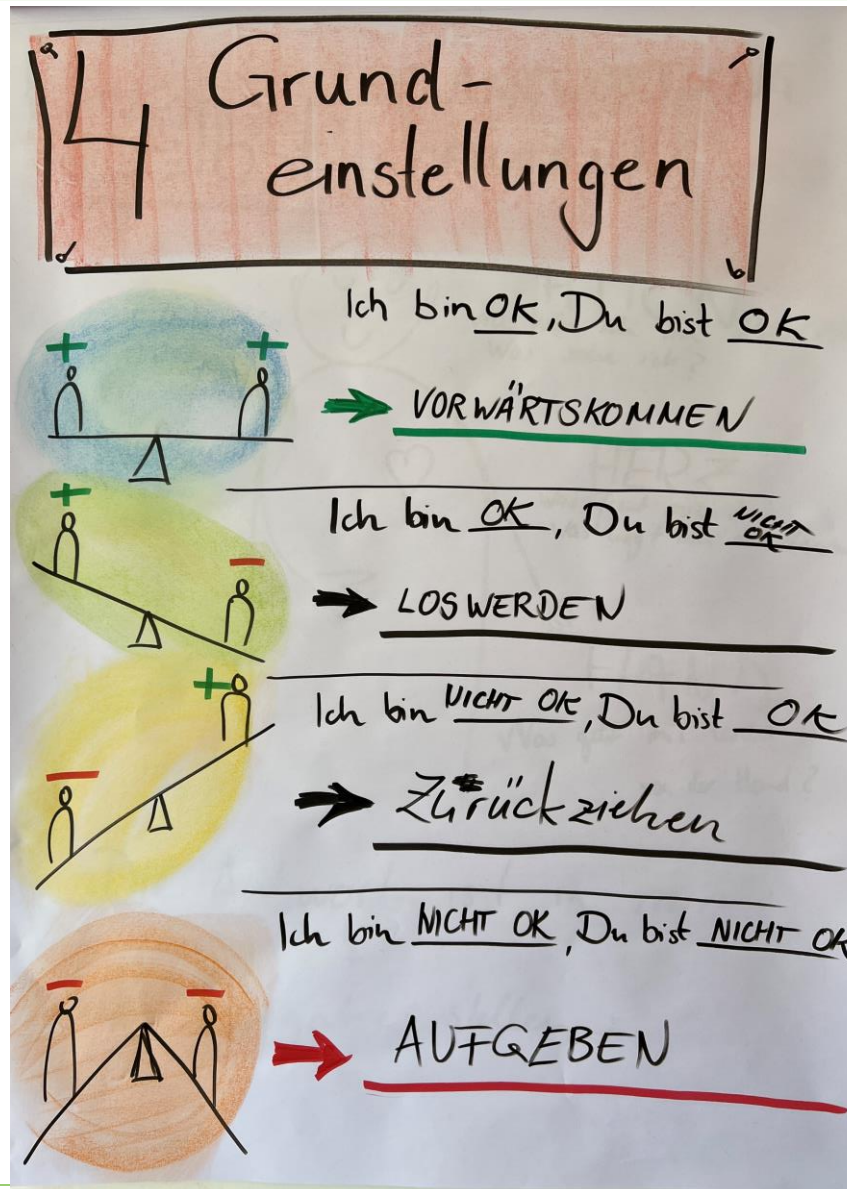 4 Grund-
einstellungen
Ich bin OK, Du bist OK
+ +
VORWÄRTSKOMMEN
Ich bin OK, Du bist NICHT OK
+ -
LOSWERDEN
Ich bin NICHT OK, Du bist OK
+ -
Zurückziehen
Ich bin NICHT OK, Du bist NICHT OK
- -
AUFGEBEN